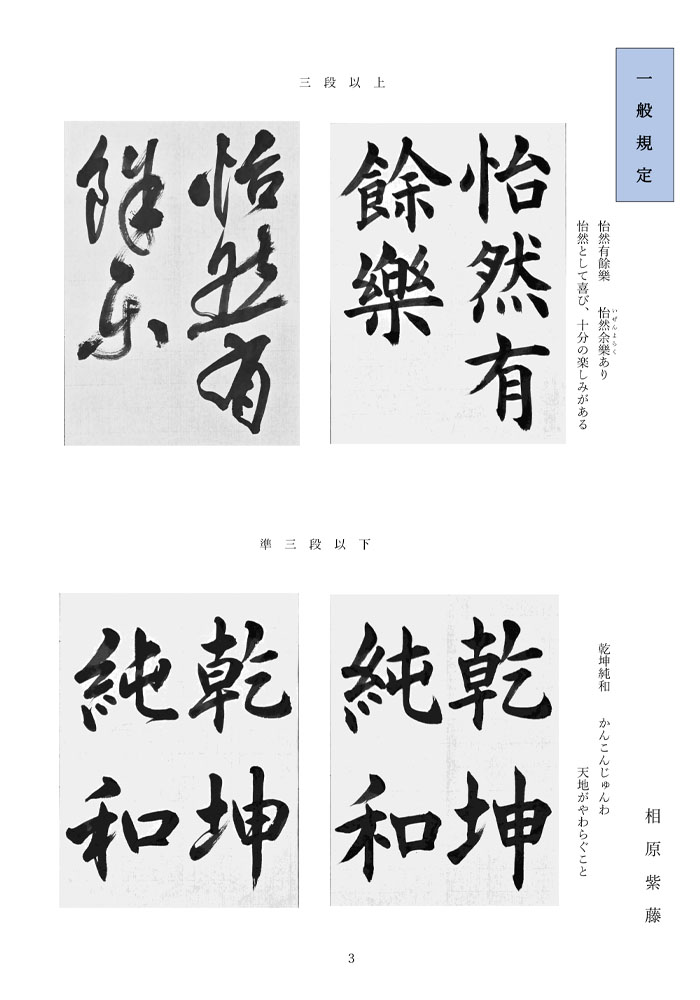 一般規定
三段以上
怡然有餘樂　怡然余樂あり
いぜんよらく
怡然として喜び、十分の楽しみがある
怡然有
餘樂
怡然有
餘樂
準三段以下
相原紫藤
乾坤純和　かんこんじゅんわ
天地がやわらぐこと
乾坤
純和
乾坤
純和
3